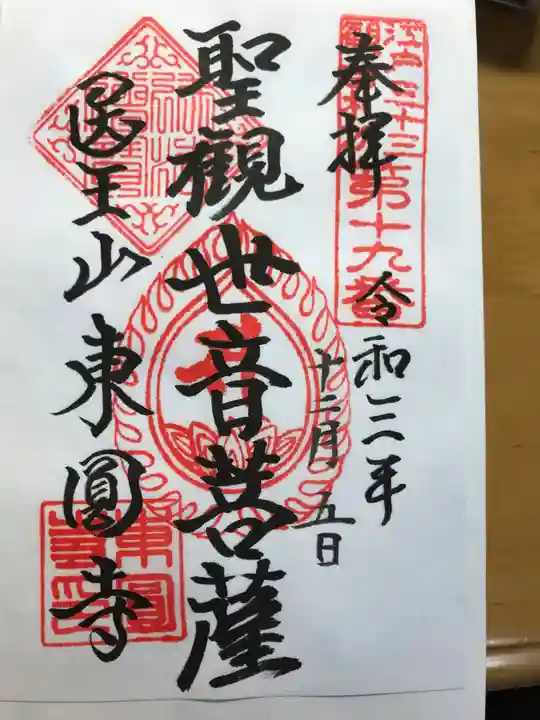 江戸三十三
観音札所第十九番
奉拝
令和三年
十二月五日
聖觀世音菩薩
医王山東圓寺
東圓寺印